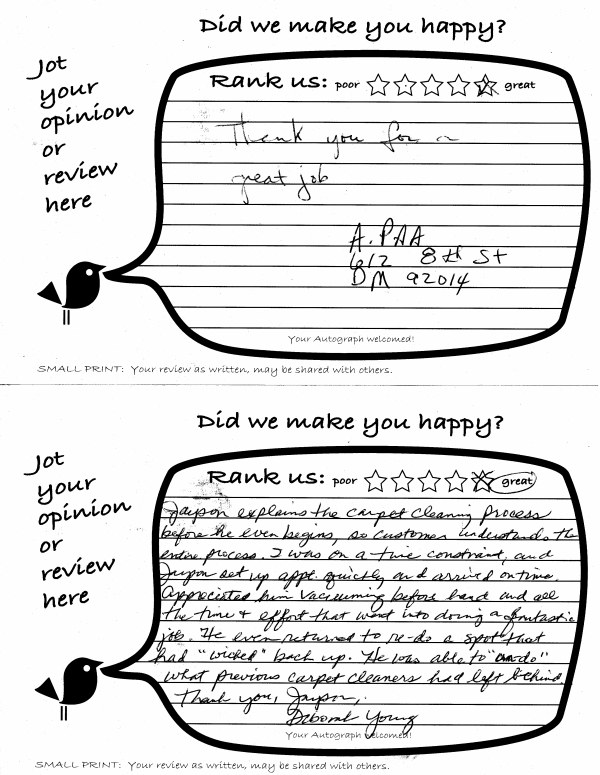 Did we make you happy?
Jot
your
opinion
or
review
here
Rank us: poor great
Thank you for a
great job
A. PAA
612 8th St
DM 92014
Your Autograph welcomed!
SMALL PRINT: Your review as written, may be shared with others.
Did we make you happy?
Jot
your
opinion
or
review
here
Rank us: poor great
Jayson explains the carpet cleaning process
before he even begins, so customer understands the
entire process. I was on a time constraint, and
Jayson set up appt. quickly and arrived on time.
Appreciated him vacuuming before hand and all
the time & effort that went into doing a fantastic
job. He even returned to re-do a spot that
had "wicked" back up. He was able to "un-do"
what previous carpet cleaners had left behind.
Thank you, Jayson,
Deborah Young
Your Autograph welcomed!
SMALL PRINT: Your review as written, may be shared with others.